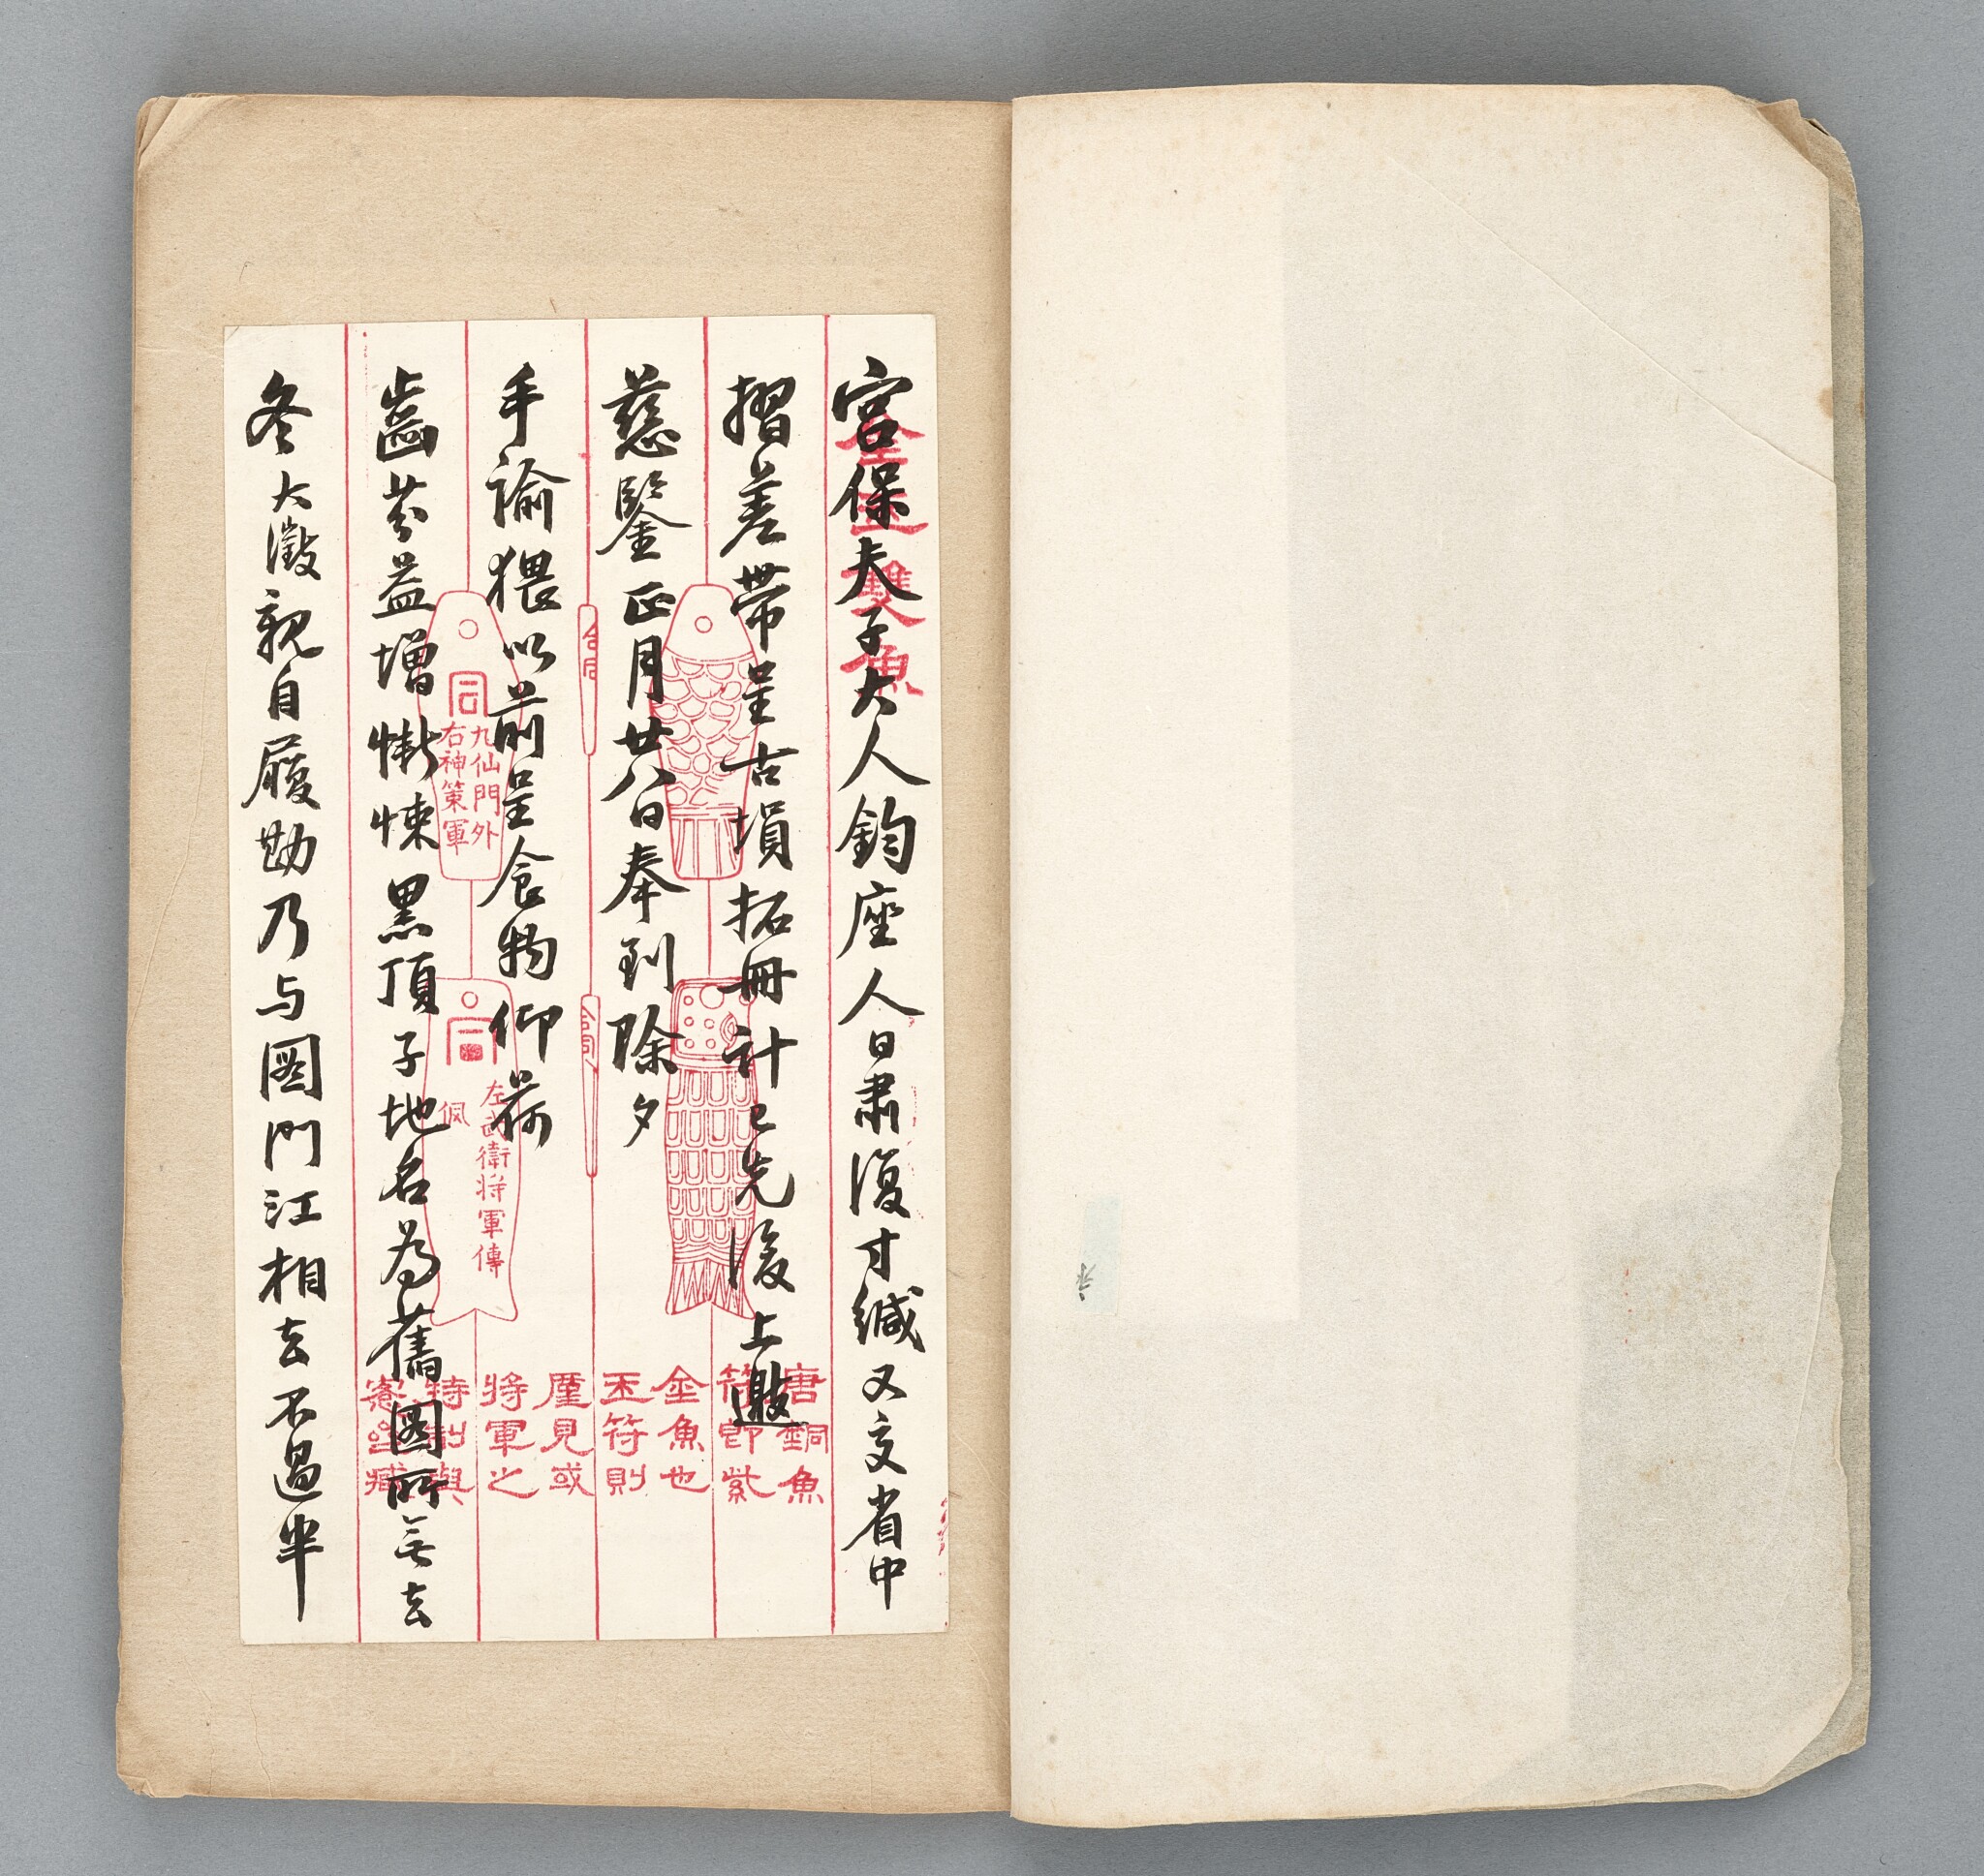 宮保夫子大人鈞座人日肅復寸緘又交省中
摺差帶呈古塤拓冊計已先後上邀
慈鑒正月廿八日奉到除夕
手諭猥以前呈食物仰荷
齒芬益增慚悚黑頂子地名為舊圖所無去
冬大澂親自履勘乃与圖門江相去不過半
雙魚
合同
合同
同
九仙門外
右神策軍
同
左武衛將軍傳
佩
唐銅魚
符即紫
金魚也
玉符則
廑見或
將軍之